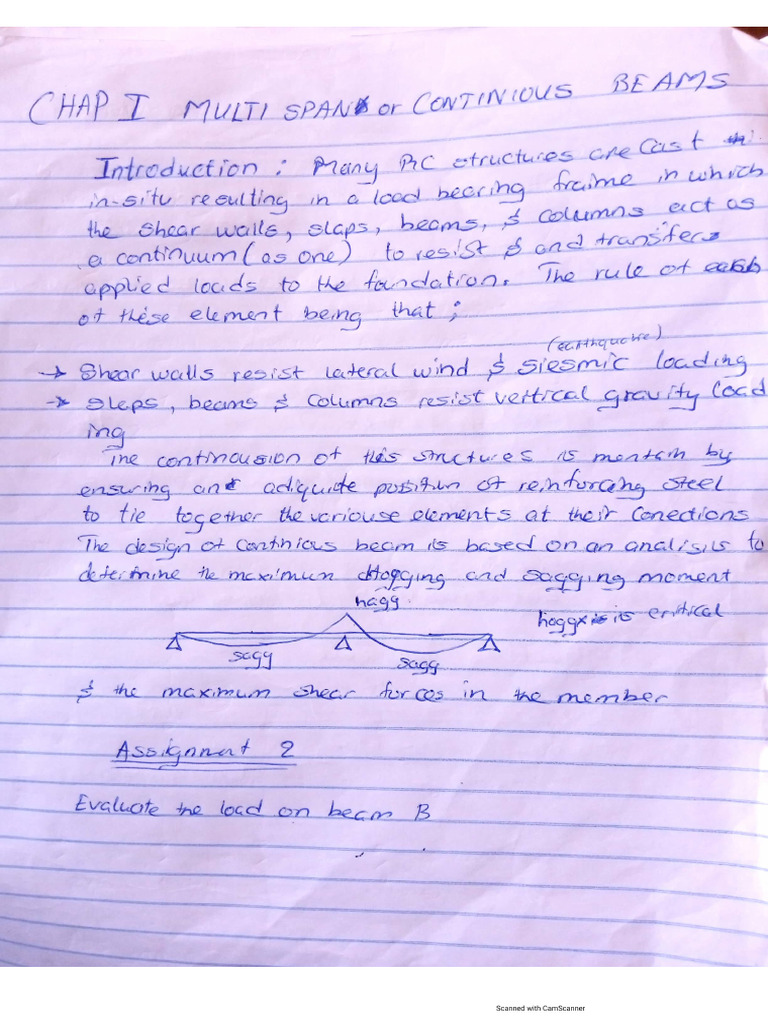 CHAP I MULTI SPAN or CONTINIOUS BEAMS
Introduction : Many RC structures are Cast
in-situ resulting in a load bearing fraime in which
the shear walls, slaps, beams, & columns act as
a continuum (as one) to resist & and transfers
applied loads to the foundation. The rule of
of these element being that ;
(earthquake)
→ Shear walls resist lateral wind & siesmic loading
→ slaps, beams & columns resist vertical gravity load
ing
The of this structures is mentain by
ensuring an adiquate position of reinforcing steel
to tie together the variouse elements at their conections
The design of continious beam is based on an analisis to
determine the maximum hogging and sagging moment
hagg.
is critical
sagg
sagg
& the maximum shear forces in the member
Assignment 2
Evaluate the load on beam B
Scanned with CamScanner